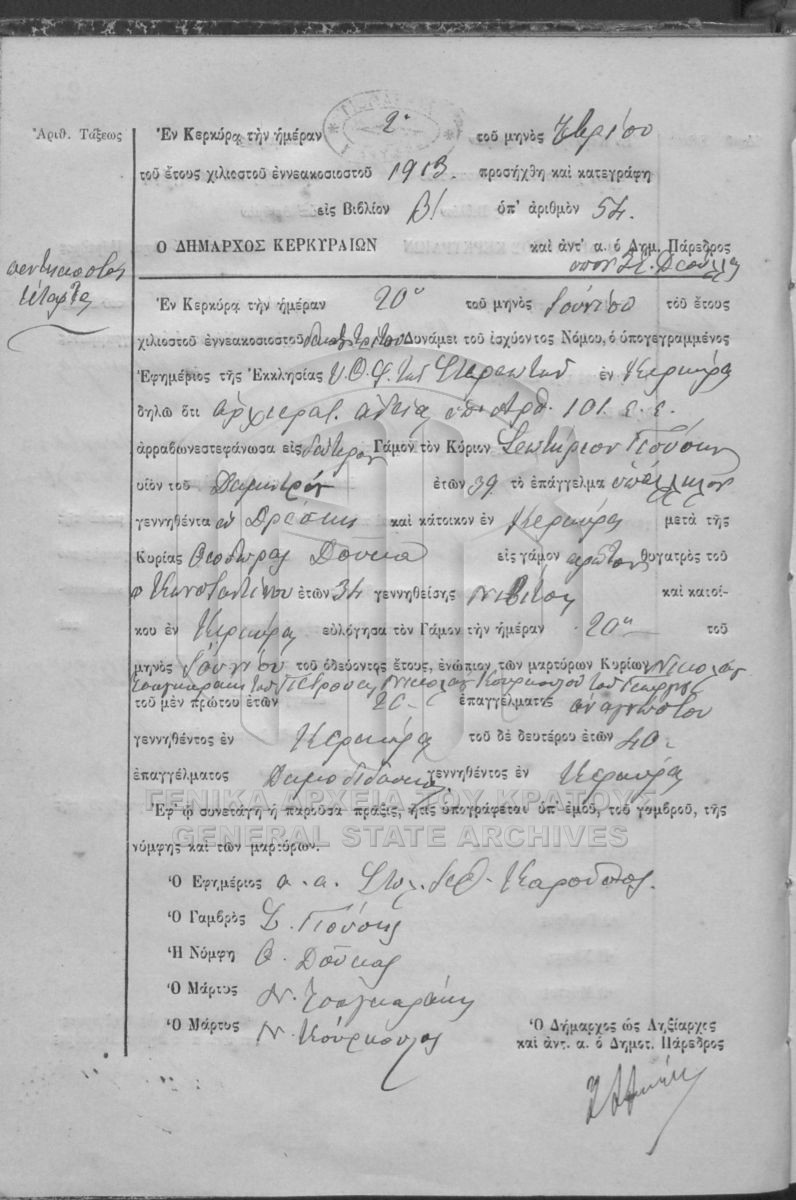 Ἀριθ. Τάξεως
Ἐν Κερκύρᾳ τὴν ἡμέραν 2α τοῦ μηνὸς 7βρίου
τοῦ ἔτους χιλιοστοῦ ἐννεακοσιοστοῦ 1913. προσήχθη καὶ κατεγράφη
εἰς Βιβλίον Β/ ὑπ' ἀριθμὸν 54.
Ο ΔΗΜΑΡΧΟΣ ΚΕΡΚΥΡΑΙΩΝ καὶ ἀντ' α. ὁ Δημ. Πάρεδρος
πεντηκοστὸς
τέταρτος
Ἐν Κερκύρᾳ τὴν ἡμέραν 20η τοῦ μηνὸς Ἰουνίου τοῦ ἔτους
χιλιοστοῦ ἐννεακοσιοστοῦ δεκάτου τρίτου Δυνάμει τοῦ ἰσχύοντος Νόμου, ὁ ὑπογεγραμμένος
Ἐφημέριος τῆς Ἐκκλησίας Υ. Θ. Φ. τῶν ἐν Κερκύρᾳ
δηλῶ ὅτι ἀρχιερατ. ἀδείᾳ ὑπ' ἀρθ. 101. ε. ε.
ἀρραβωνεστεφάνωσα εἰς δεύτερον Γάμον τὸν Κύριον Σωτήριον Γιούσην
υἱὸν τοῦ Δημητρίου ἐτῶν 39 τὸ ἐπάγγελμα ὑπάλληλον
γεννηθέντα ἐν καὶ κάτοικον ἐν Κερκύρᾳ μετὰ τῆς
Κυρίας Θεοδώρας Δούκα εἰς γάμον πρῶτον θυγατρὸς τοῦ
Κωνσταντίνου ἐτῶν 34 γεννηθείσης καὶ κατοί-
κου ἐν Κερκύρᾳ εὐλόγησα τὸν Γάμον τὴν ἡμέραν 20η τοῦ
μηνὸς Ἰουνίου τοῦ ὁδεύοντος ἔτους, ἐνώπιον τῶν μαρτύρων Κυρίων Νικολάου
Τσαγκαράκη τοῦ Πέτρου καὶ Νικολάου Κούρκουλου τοῦ Γεωργίου
τοῦ μὲν πρώτου ἐτῶν ἐπαγγέλματος ἀναγνώστου
γεννηθέντος ἐν Κερκύρᾳ τοῦ δὲ δευτέρου ἐτῶν 40
ἐπαγγέλματος Δημοδιδασκάλου γεννηθέντος ἐν Κερκύρᾳ
ΓΕΝΙΚΑ ΑΡΧΕΙΑ ΤΟΥ ΚΡΑΤΟΥΣ
Ἐφ' ᾧ συνετάγη ἡ παροῦσα πρᾶξις, ἥτις ὑπογράφεται ὑπ' ἐμοῦ, τοῦ γαμβροῦ, τῆς
GENERAL STATE ARCHIVES
νύμφης καὶ τῶν μαρτύρων.
Ὁ Ἐφημέριος
Ὁ Γαμβρὸς Σ. Γιούσης
Ἡ Νύμφη Θ. Δούκα
Ὁ Μάρτυς Ν. Τσαγκαράκης
Ὁ Μάρτυς Ν. Κούρκουλος
Ὁ Δήμαρχος ὡς Ληξίαρχος
καὶ ἀντ. α. ὁ Δημοτ. Πάρεδρος